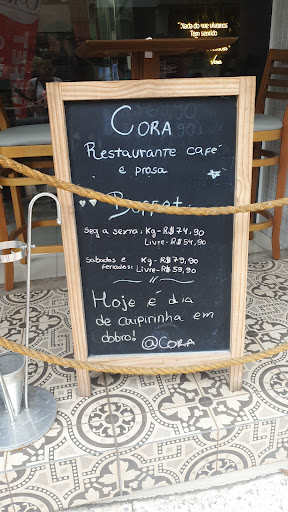 "Nada do que vivemos
Tem sentido
CORA
Restaurante café
e prosa
Buffet:
Seg a sexta: Kg-R$74,90
Livre-R$54,90
Sabados e
feriados: Kg-R$79,90
Livre-R$59,90
Hoje é dia
de caipirinha em
dobro! @CORA